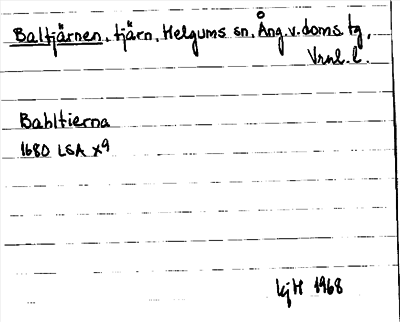 Baltjärnen, tjärn, Helgums sn, Ång. v. doms. tg,
Vrnl. l.
Bahltierna
1680 LSA X9
KjH 1968